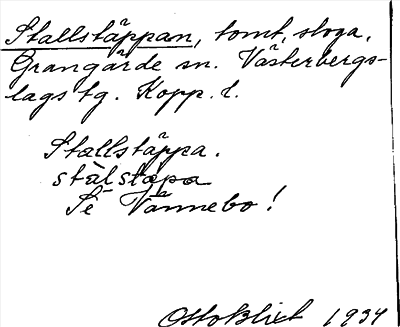 Stallstäppan, tomt, stoga,
Grangärde sn. Västerbergs-
lags tg. Kopp. l.
Stallstäppa.
stàlstæpa
Se Vännebo!
Otto Blixt 1934